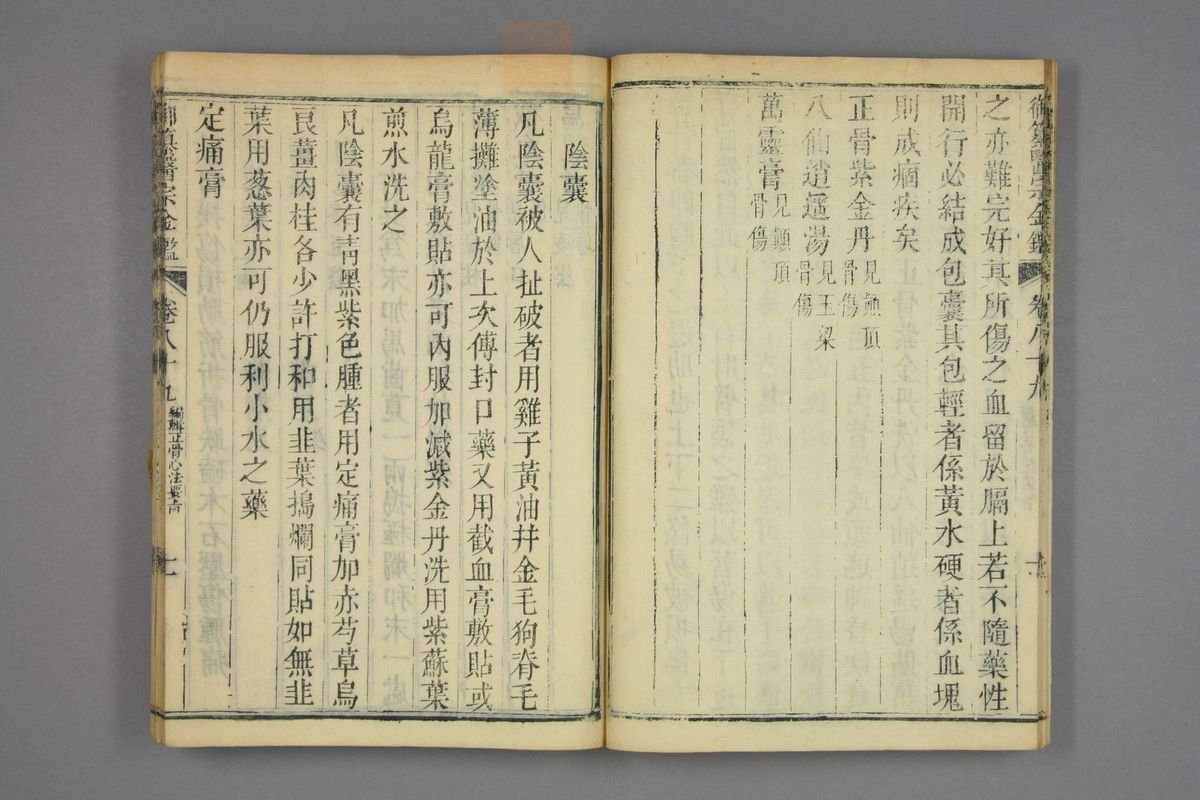 御纂醫宗金鑑 卷八十九
之亦難完好其所傷之血留於膈上若不隨藥性
開行必結成包囊其包輕者係黃水硬者係血塊
則成痼疾矣
正骨紫金丹 見顛頂骨傷
八仙逍遙湯 見玉梁骨傷
萬靈膏 見顛頂骨傷
陰囊
凡陰囊被人扯破者用雞子黃油并金毛狗脊毛
薄攤塗油於上次傅封口藥又用截血膏敷貼或
烏龍膏敷貼亦可內服加減紫金丹洗用紫蘇葉
煎水洗之
凡陰囊有靑黑紫色腫者用定痛膏加赤芍草烏
良薑肉桂各少許打和用韭葉搗爛同貼如無韭
葉用葱葉亦可仍服利小水之藥
定痛膏
御纂醫宗金鑑 卷八十九 編輯正骨心法要旨 十一